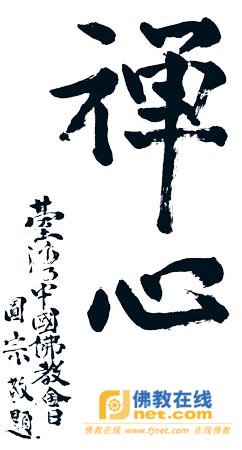 禅心
臺灣中國佛教會
圓宗敬題
佛教在线
net.com
佛教在线 www.fjnet.com 佛教在线